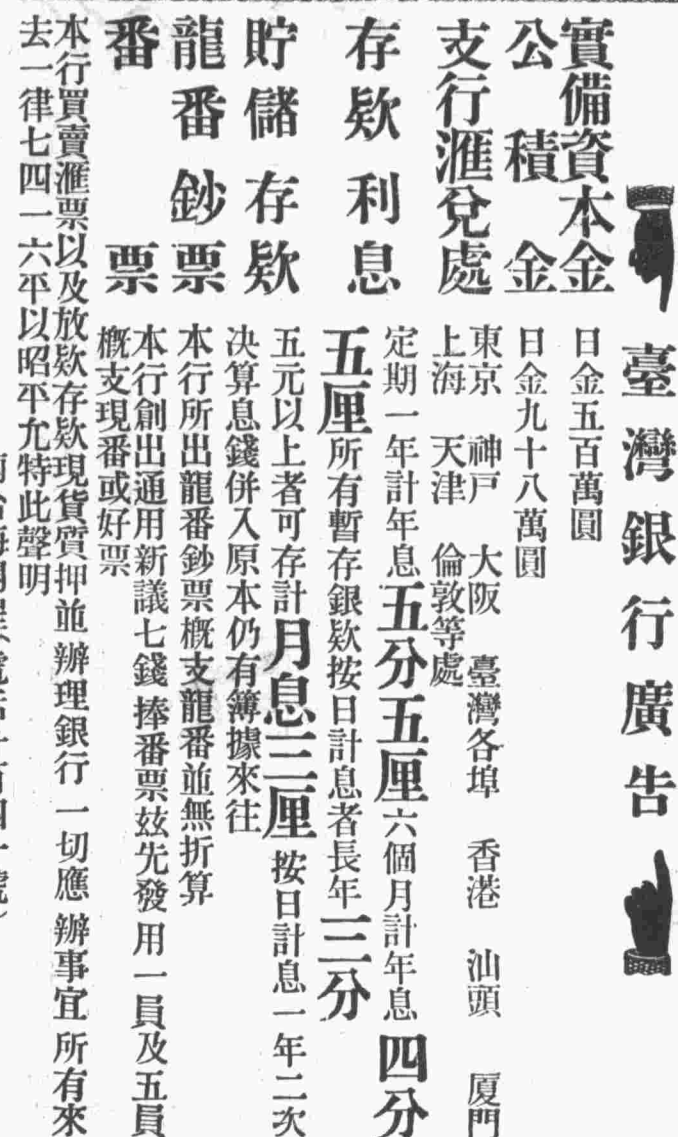 臺灣銀行廣告
實備資本金 日金五百萬圓
公積金 日金九十八萬圓
支行滙兌處 東京 神戶 大阪 臺灣各埠 香港 汕頭 厦門
上海 天津 倫敦等處
存欵利息 定期一年計年息五分五厘六個月計年息四分
五厘所有暫存銀欵按日計息者長年三分
貯儲存欵 五元以上者可存計月息三厘按日計息一年二次
决算息錢併入原本仍有簿據來往
龍番鈔票 本行所出龍番鈔票概支龍番並無折算
番票 本行創出通用新議七錢捧番票玆先發用一員及五員
概支現番或好票
本行買賣滙票以及放欵存欵現貨質押並辦理銀行一切應辦事宜所有來
去一律七四一六平以昭平允特此聲明